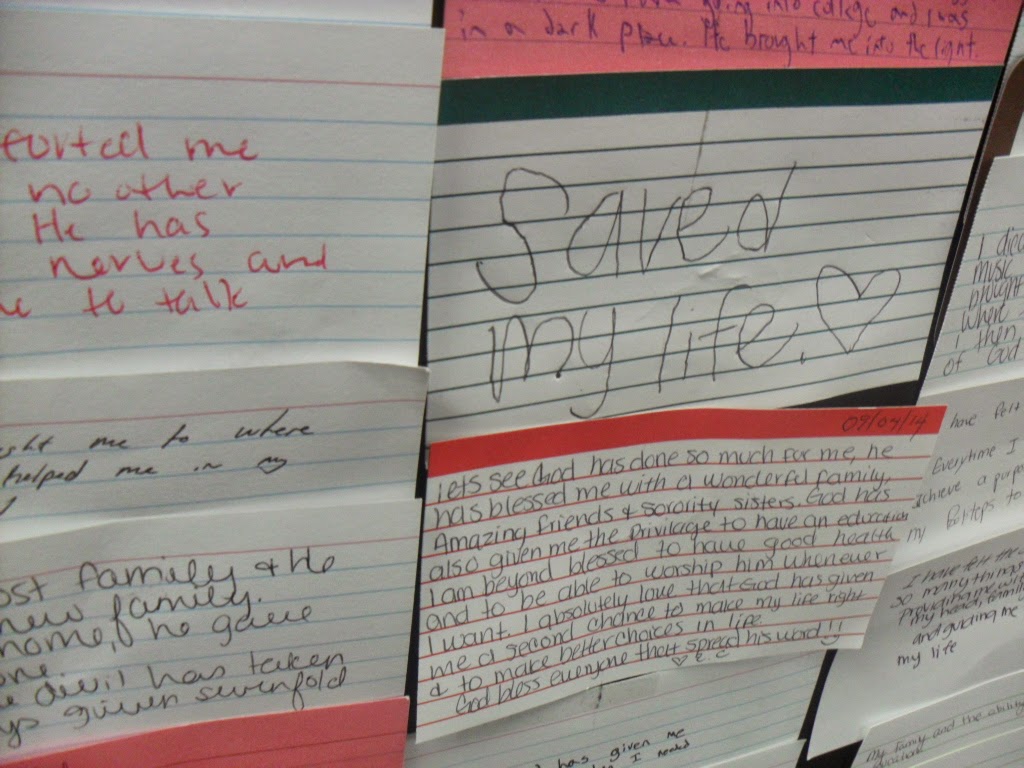 going into college and I was
in a dark place. He brought me into the light.
forted me
no other
He has
nerves and
to talk
Saved
my life.
ght me to where
helped me in my
ost family & He
new family.
home, he gave
one
devil has taken
given sevenfold
09/04/14
lets see God has done so much for me, he
has blessed me with a wonderful family,
Amazing friends & sorority sisters. God has
also given me the Privilage to have an education
I am beyond blessed to have good health
and to be able to worship him whenever
I want. I absolutely love thatt God has given
me a second chance to make my life right
& to make better choices in life
God bless everyone thatt spread his word!!
has given me
I needed
music
brought
where
I then
of God
have felt
Everytime I
achieve a purpo
my footsteps to
I have felt the
so many things
providing me with
my needs, family
and guiding me
my life
My family and the ability